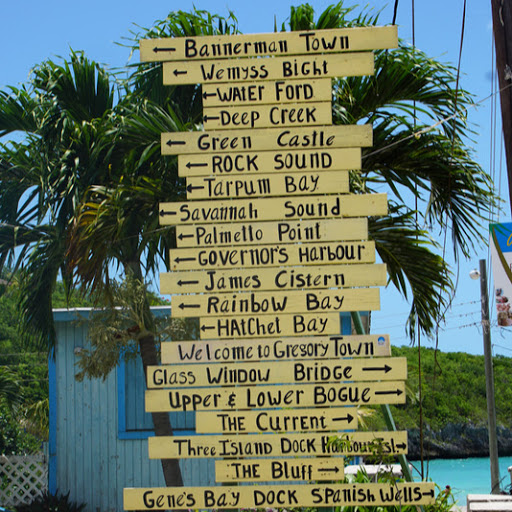 ← Bannerman Town
← Wemyss Bight
← WATER FORD
← DEEP CREEK
← Green Castle
← ROCK SOUND
← TARPUM BAY
← Savannah Sound
← Palmetto Point
← GOVERNOR'S HARBOUR
← JAMES CISTERN
← RAINBOW BAY
← HATCHET BAY
Welcome to Gregory Town
Glass Window Bridge →
Upper & Lower Bogue →
The Current →
Three Island DOCK Harbour Isl →
The Bluff →
Gene's Bay DOCK Spanish Wells →